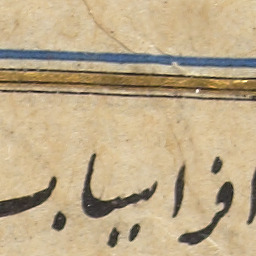 افراسیاب